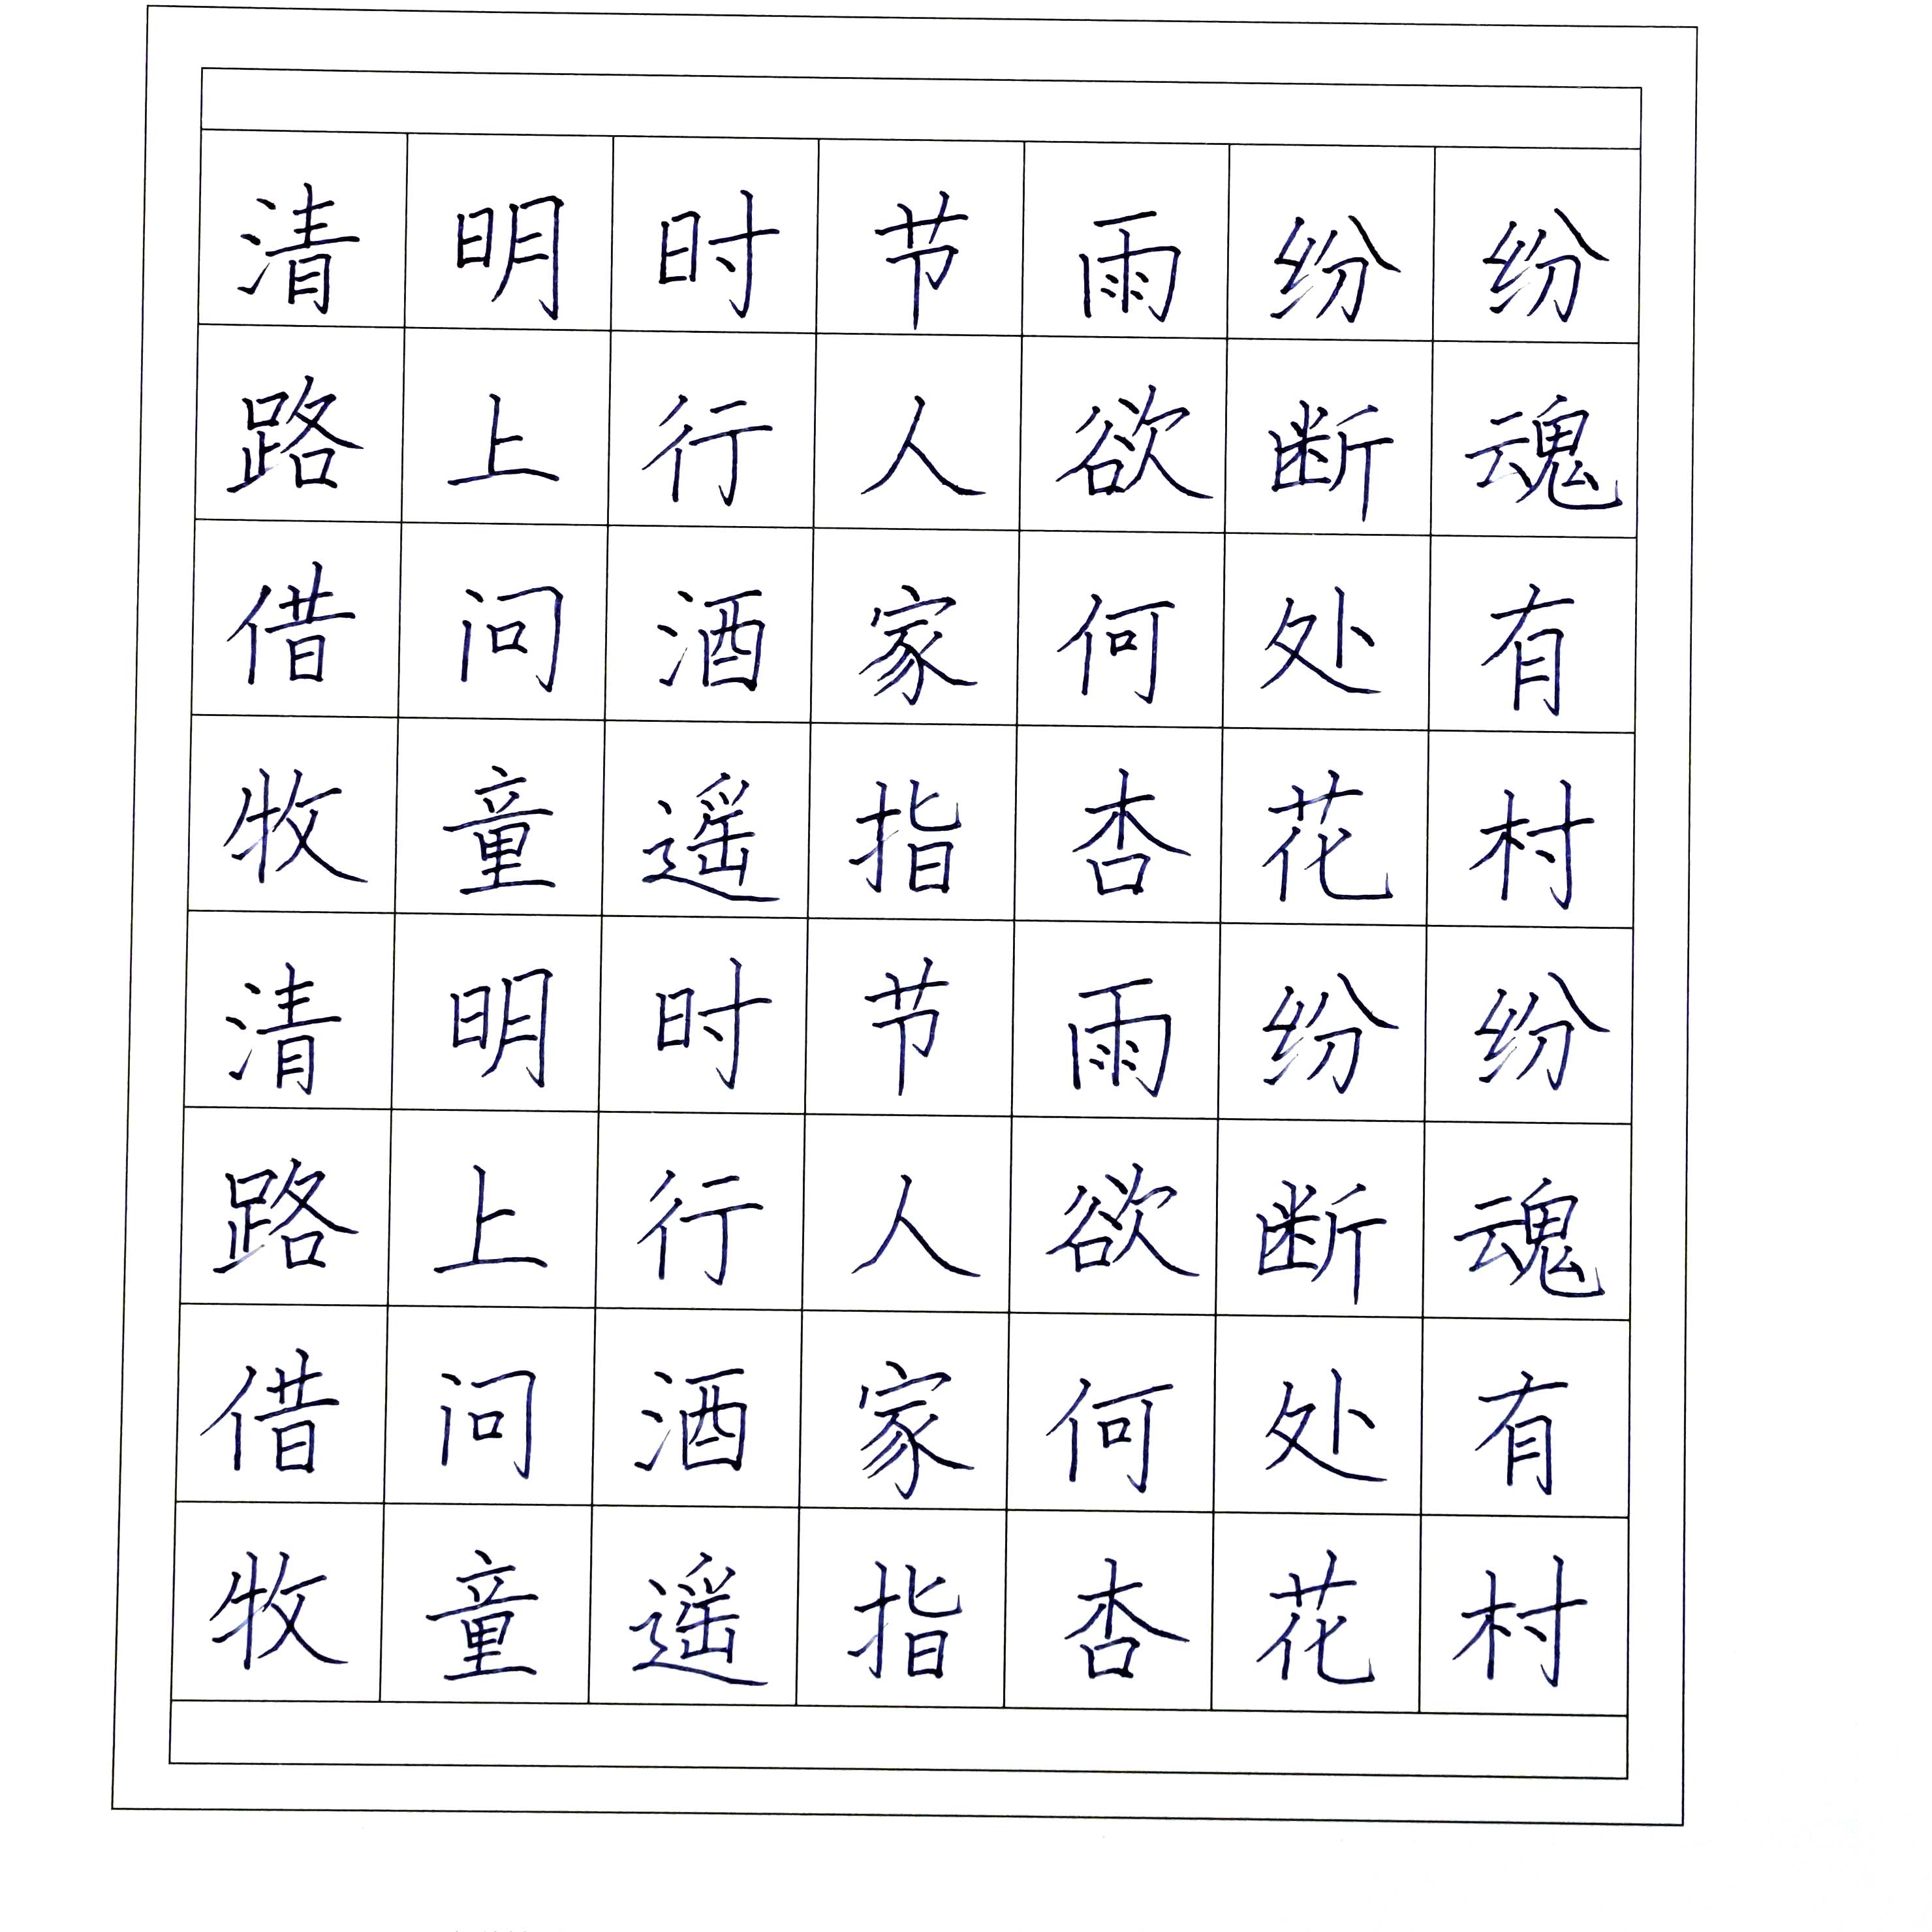 清明时节雨纷纷
路上行人欲断魂
借问酒家何处有
牧童遥指杏花村
清明时节雨纷纷
路上行人欲断魂
借问酒家何处有
牧童遥指杏花村